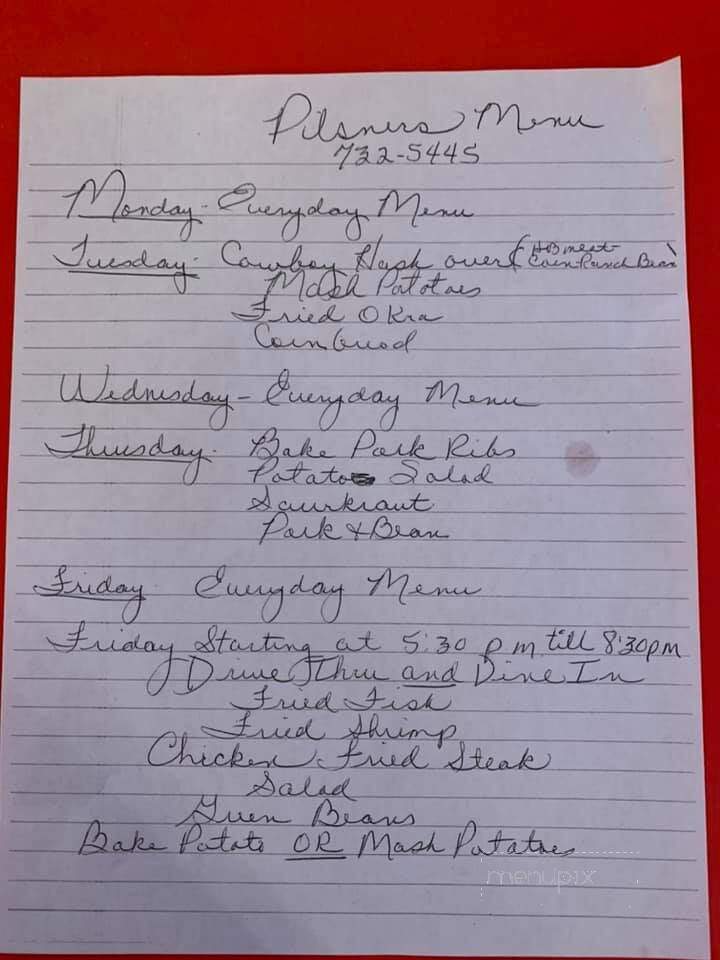 Pilsners Menu
722-5445
Monday - Everyday Menu
Tuesday - Cowboy Hash over (HB meat
Corn Ranch Bean)
Mash Patotoes
Fried Okra
Cornbread
Wednesday - Everyday Menu
Thursday - Bake Pork Ribs
Potato Salad
Saurkraut
Pork & Bean
Friday Everyday Menu
Friday Starting at 5:30 pm till 8:30pm
Drive Thru and Dine In
Fried Fish
Fried Shrimp
Chicken Fried Steak
Salad
Green Beans
Bake Potato OR Mash Potatoes
menupix